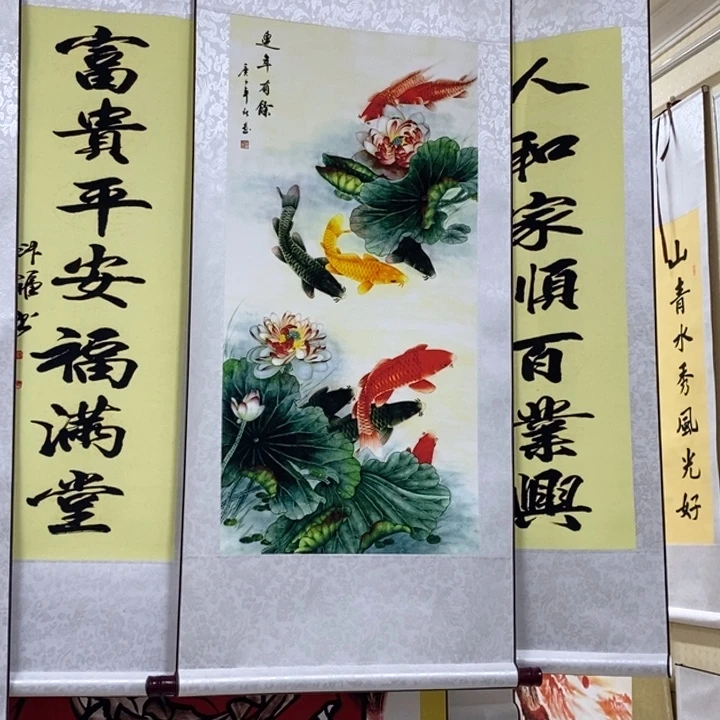 人和家順百業興
富貴平安福滿堂
連年有餘
山青水秀風光好